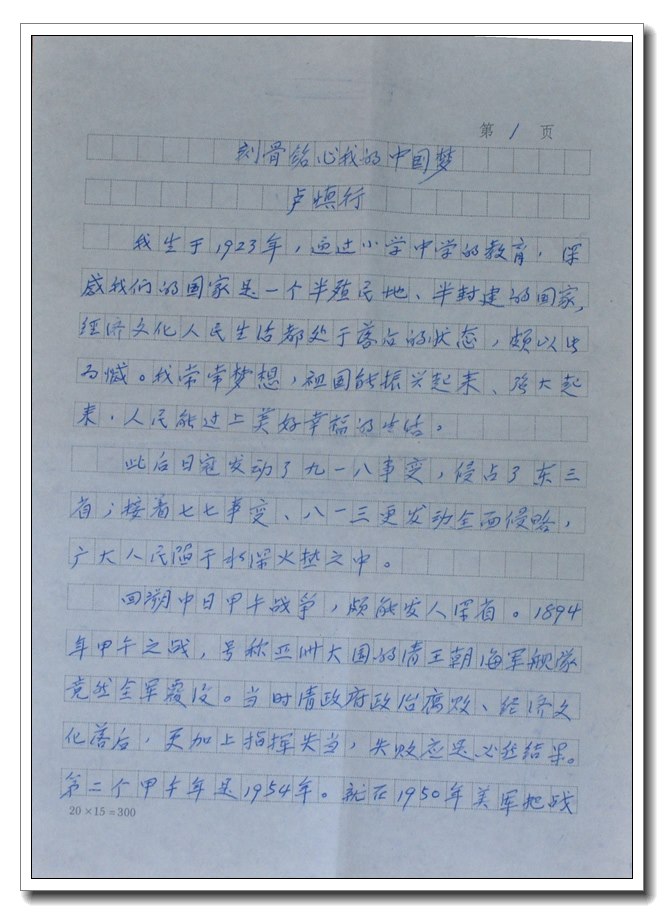 第 1 页
刻骨铭心我的中国梦
卢慎行
我生于1923年，通过小学中学的教育，深
感我们的国家是一个半殖民地、半封建的国家，
经济文化人民生活都处于落后的状态，颇以此
为憾。我常常梦想，祖国能振兴起来、强大起
来，人民能过上美好幸福的生活。
此后日寇发动了九一八事变，侵占了东三
省；接着七七事变、八一三更发动全面侵略，
广大人民陷于水深火热之中。
回溯中日甲午战争，颇能发人深省。1894
年甲午之战，号称亚洲大国的清王朝海军舰队
竟然全军覆没。当时清政府政治腐败、经济文
化落后，更加上指挥失当，失败应是必然结果。
第二个甲午年是1954年。就在1950年美军把战
20×15=300